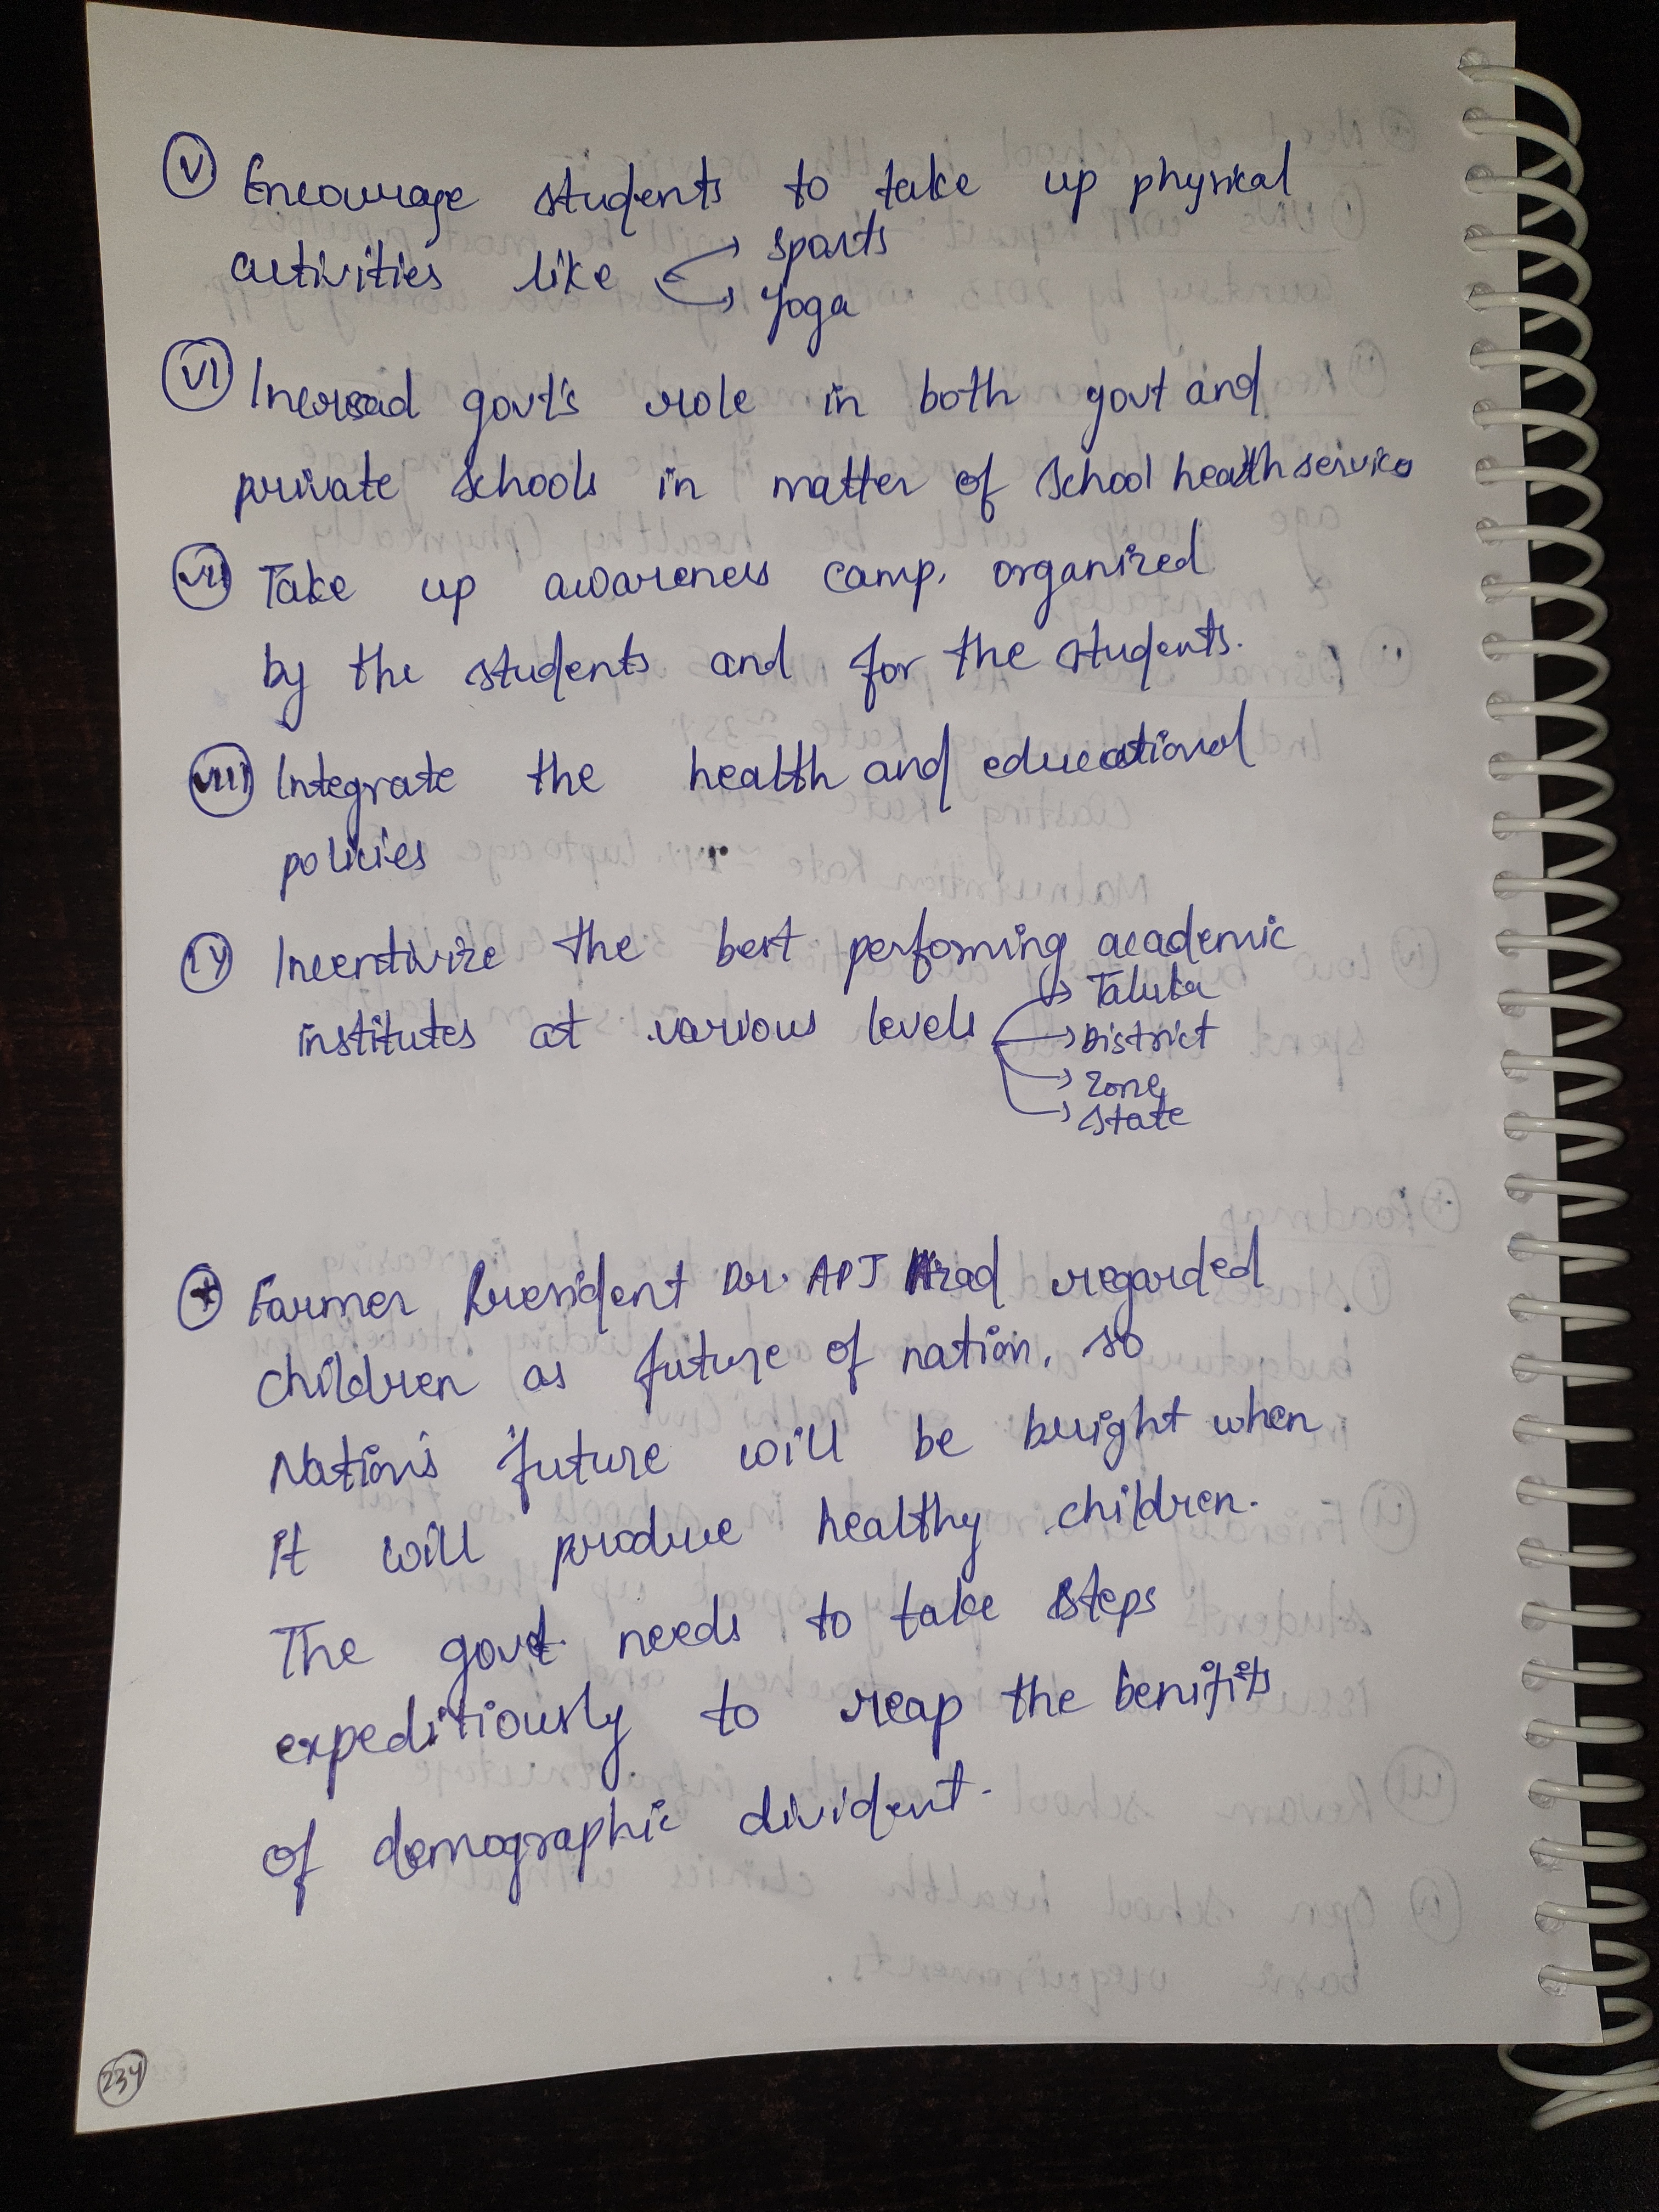 (v) Encourage students to take up physical
activities like → sports
→ Yoga
(vi) Incresad govt's role in both govt and
private schools in matter of school health service
(vii) Take up awareness camp. organized
by the students and for the students.
(viii) Integrate the health and educational
policies
Incentivize the best perfoming academic
institutes at various levels → Taluka
→ District
→ Zone
→ State
Farmer President Dr. APJ regarded
children as future of nation, so
Nation's future will be bright when
it will produce healthy children.
The govt needs to take steps
expeditiously to reap the benifits
of demographic divident.
234